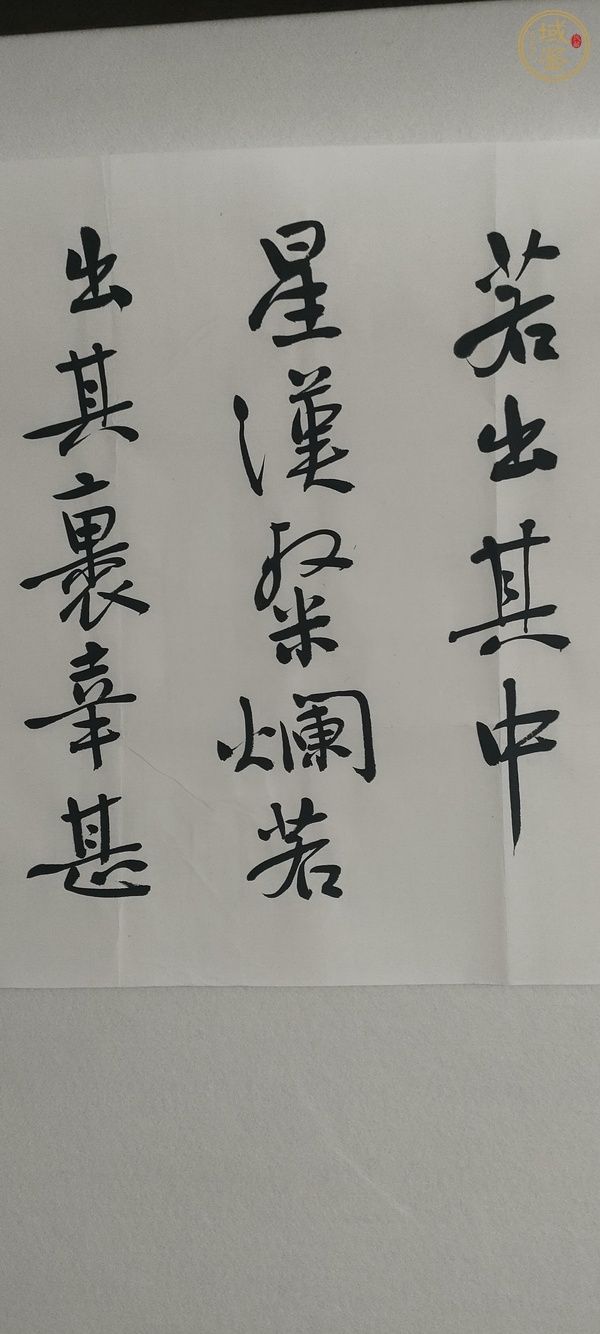 若出其中
星漢粲爛若
出其裹幸甚
域鉴